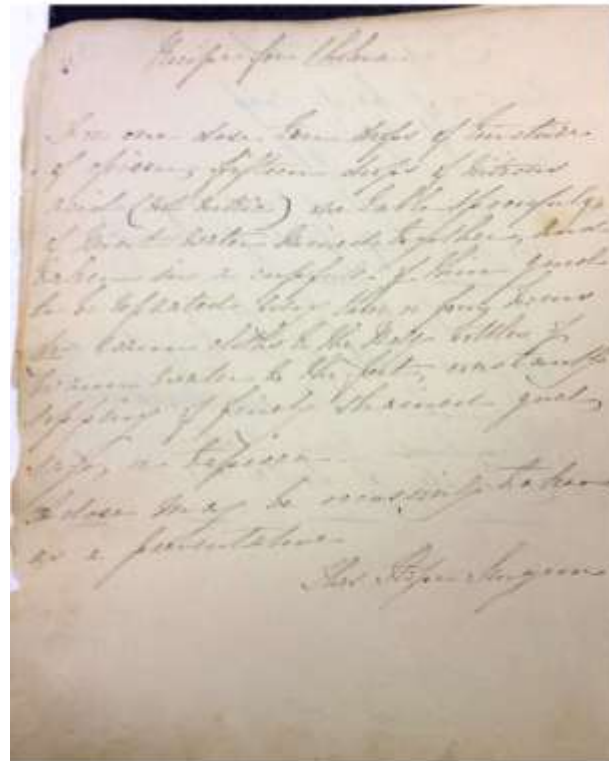 Recipe for Cholera
For one dose ten drops of tincture
of opium, fifteen drops of nitrous
acid (not nitric) six table spoonfuls
of water mixed together, and
taken in a cupful of thin gruel
to be repeated every three or four hours
warm cloths to the body bottles of
warm water to the feet, constant
sipping of finely strained gruel,
sago, or tapioca
A dose may be taken
as a preventative
Surgeon